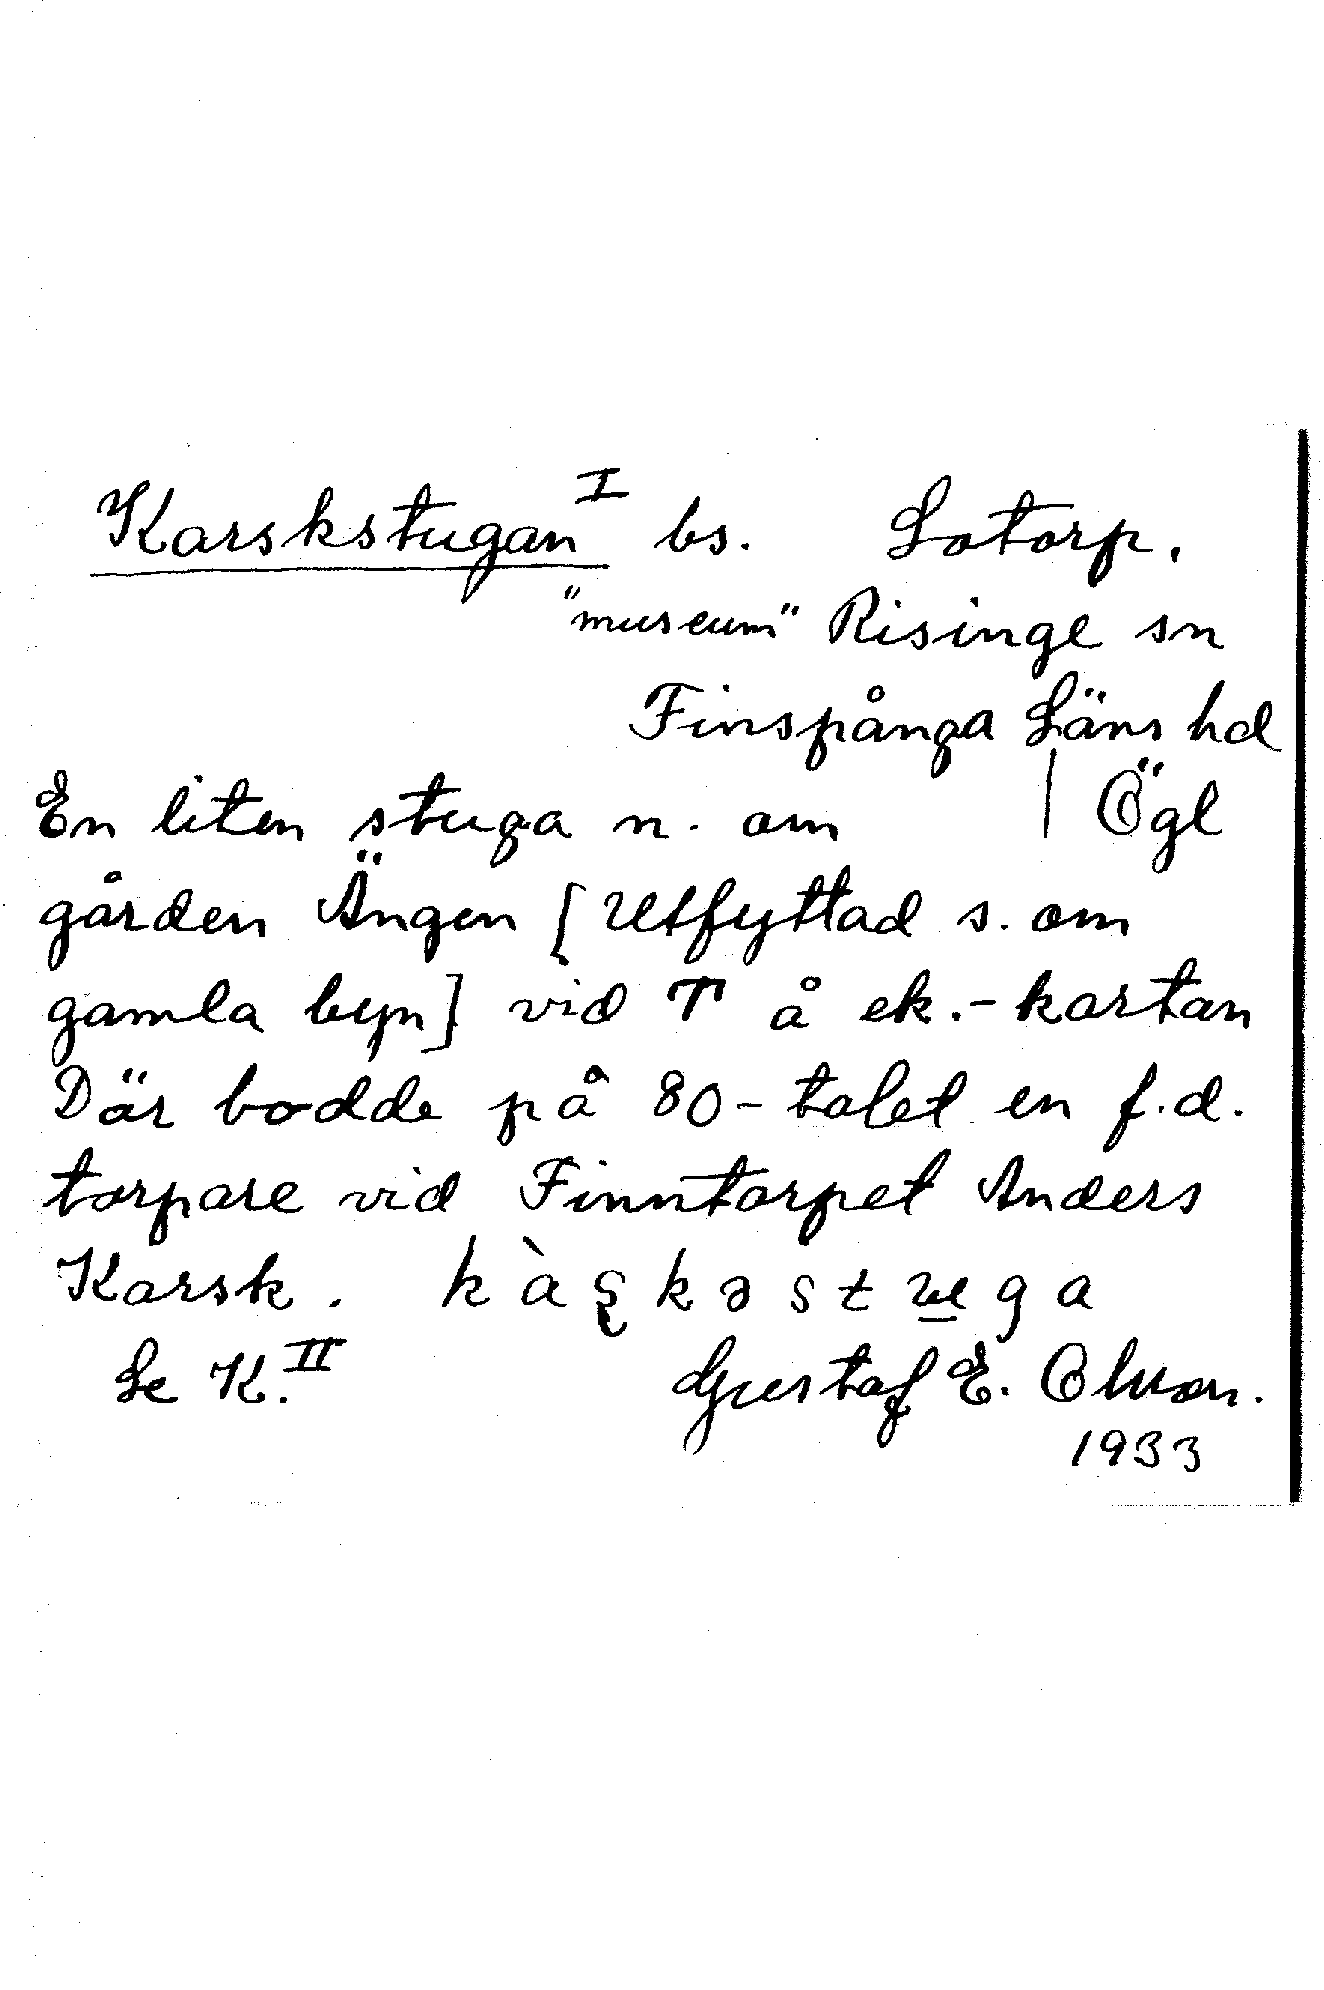 Karskstugan I bs. Lotorp.
"museum" Risinge sn
Finspånga Läns hd
En liten stuga n. om | Ögl
gården Ängen [Utfyttad s. om
gamla byn] vid T å ek.-kartan
Där bodde på 80-talet en f.d.
torpare vid Finntorpet Anders
Karsk. kàʂkəstu̲ga
Se K. II Gustaf E. Olsson.
1933